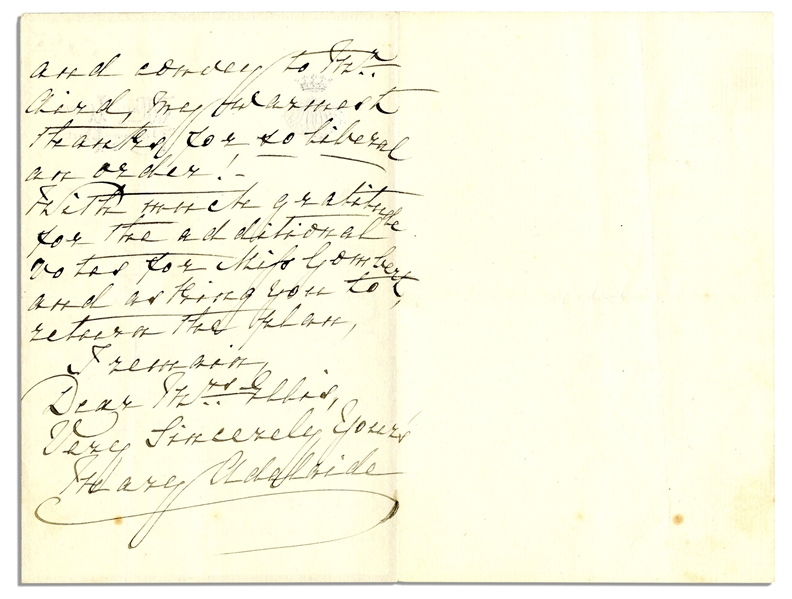 and convey to Mr.
Aird, my warmest
thanks for so liberal
an order! -
With much gratitude
for the additional
votes for Miss Gombert,
and asking you to
return the plan,
I remain,
Dear Mrs. Ellis,
Very Sincerely Yours
Mary Adelaide